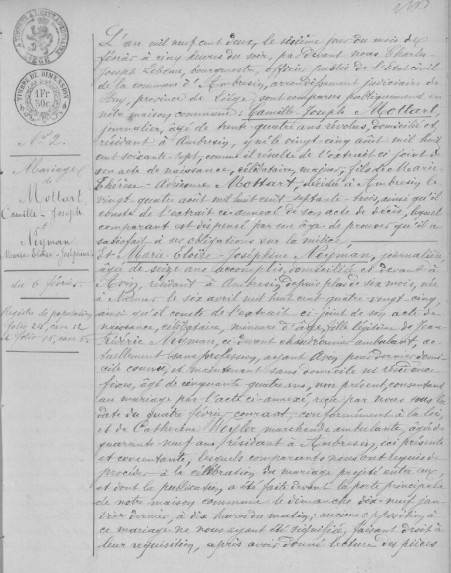 L'an mil neuf cent deux, le sixième jour du mois de
février à cinq heures du soir, par devant nous Charles
Joseph Lebeau, bourgmestre, officier public de l'état civil
de la commune d'Ambresin, arrondissement judiciaire de
Huy, province de Liége, sont comparus publiquement en
notre maison commune: Camille Joseph Mottart,
journalier, âgé de trente quatre ans révolus, domicilié et
résidant à Ambresin, y né le vingt cinq août mil huit
cent soixante-sept, comme il résulte de l'extrait ci joint de
son acte de naissance, célibataire, majeur, fils de Marie
Thérèse-Adrienne Mottart, décédée à Ambresin, le
vingt quatre août mil huit cent septante-trois, ainsi qu'il
conste de l'extrait ci-annexé de son acte de décès, lequel
comparant est dispensé par son âge de prouver qu'il a
satisfait à ses obligations sur la milice,
Et Marie Eloïse-Joséphine Neyman, journalière
âgée de seize ans accomplis, domiciliée ci devant à
résidant à Ambresin depuis plus de six mois, née
à Namur le six avril mil huit cent quatre vingt cinq,
ainsi qu'il conste de l'extrait ci-joint de son acte de
naissance, célibataire, mineure d'âge, fille légitime de Jean
Pierre Neyman, ci-devant chaudronnier ambulant, ac-
tuellement sans profession, ayant pour dernier domi-
cile connu, et maintenant sans domicile ni résidence
fixes, âgé de cinquante quatre ans, non présent, consentant
au mariage par l'acte ci-annexé, reçu par nous sous la
date du quatre février courant, conformément à la loi,
et de Catherine marchande ambulante, âgée de
quarante-neuf ans résidant à Ambresin, ici présente
et consentante, lesquels comparants nous ont requis de
procéder à la célébration du mariage projeté entre eux
et dont la publication a été faite devant la porte principale
de notre maison commune le dimanche dix-neuf jan-
vier dernier, à dix heures du matin; aucune opposition à
ce mariage ne nous ayant été signifiée, faisant droit à
leur réquisition, après avoir donné lecture des pièces
TIMBRE DE DIMENSION
1 Fr
50c
N° 2.
Mariage
de
Mottart
Camille-Joseph
et
Neyman
Marie Eloïse-Joséphine
du 6 février
Registre de population
folio 24, case 12
et folio 15, case 5